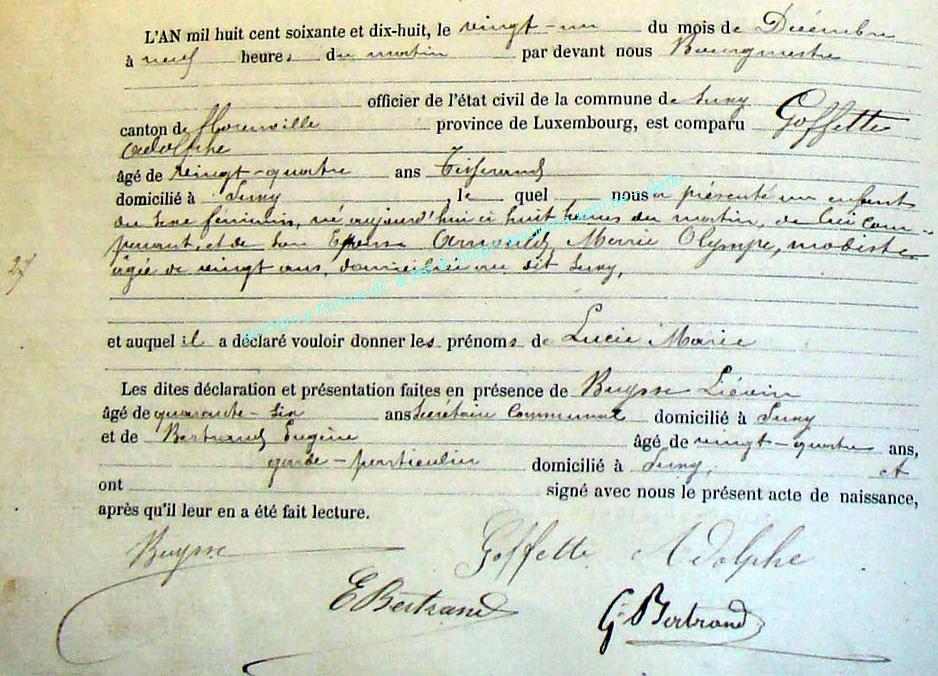 L'AN mil huit cent soixante et dix-huit, le vingt-un du mois de Décembre
à neuf heures du matin par devant nous Bourgmestre
officier de l'état civil de la commune de Suxy
canton de Florenville province de Luxembourg, est comparu Goffette
Adolphe
âgé de vingt-quatre ans Tisserand
domicilié à Suxy le quel nous a présenté un enfant
du sexe féminin, né aujourd'hui à huit heures du matin, de lui com-
parant, et de son Epouse Arnould Marie Olympe, modiste
âgée de vingt ans, domiciliée au dit Suxy,
27
et auquel il a déclaré vouloir donner les prénoms de Lucie Marie
Les dites déclaration et présentation faites en présence de Buysse Liévin
âgé de quarante-six ans Secrétaire Communal domicilié à Suxy
et de Bertrand Eugène âgé de vingt-quatre ans,
garde-particulier domicilié à Suxy, et
ont signé avec nous le présent acte de naissance,
après qu'il leur en a été fait lecture.
Buysse Goffette Adolphe
E Bertrand G. Bertrand